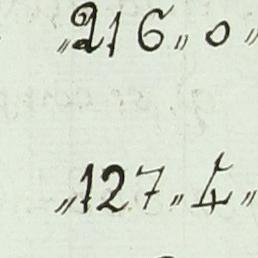 „216„ 0„
„127„ 4„